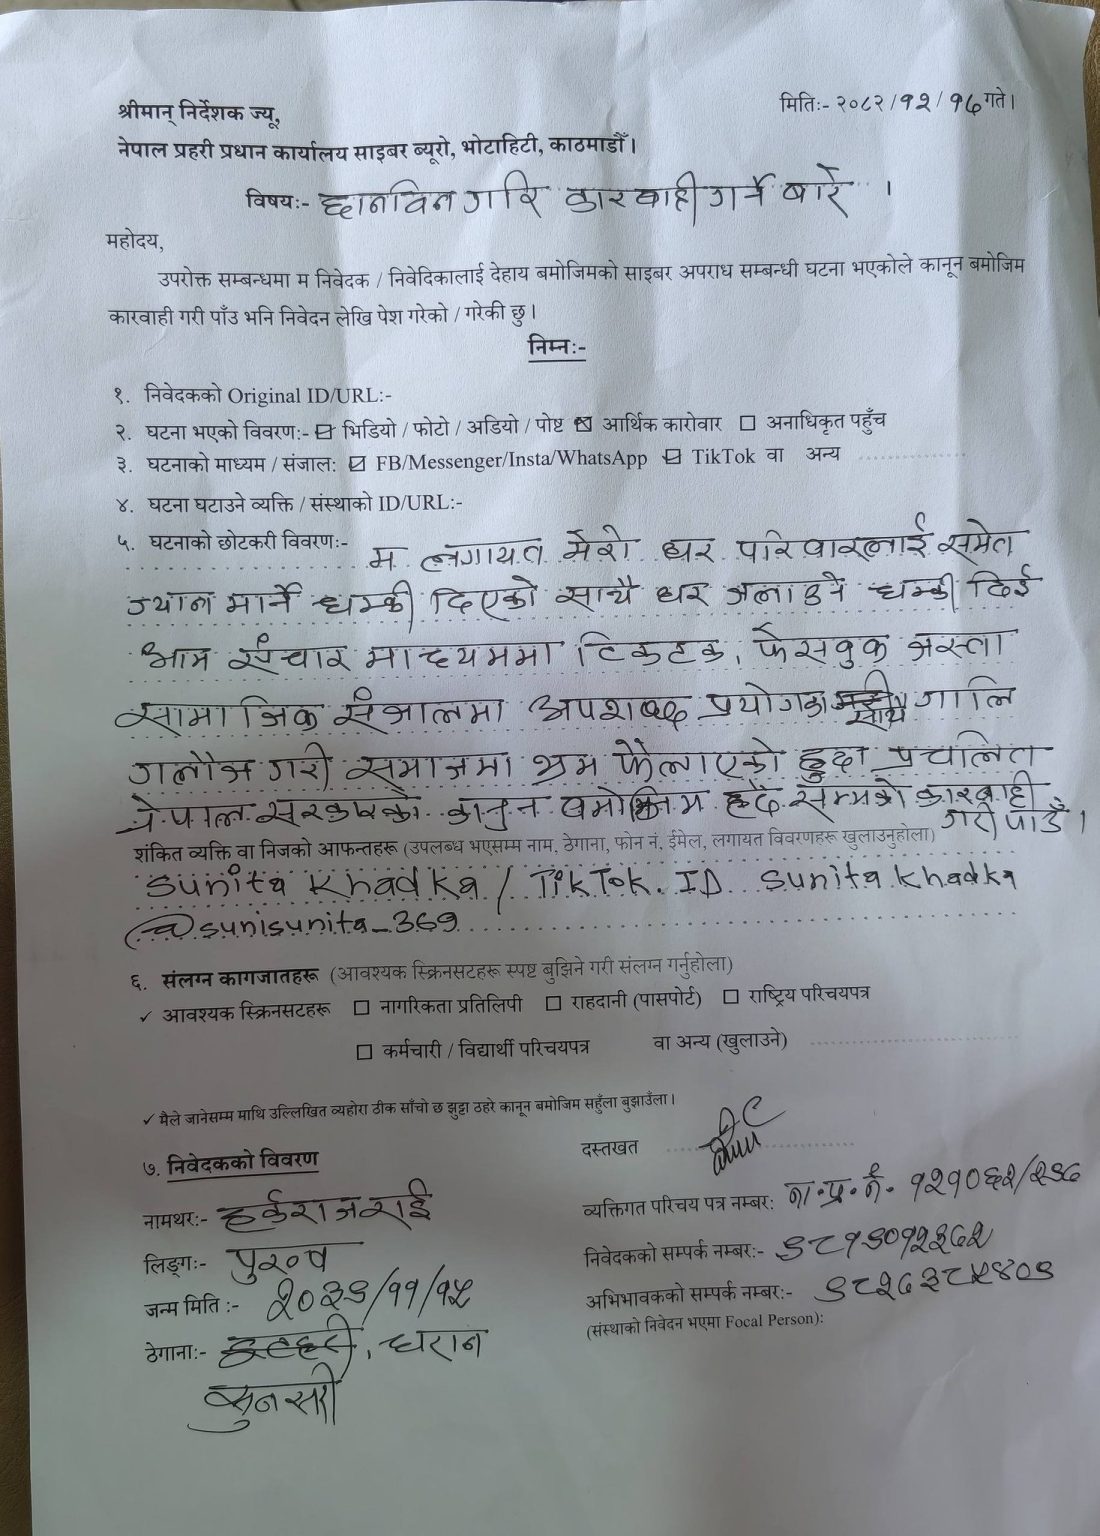 मितिः- २०८२/१२/१७ गते।
श्रीमान् निर्देशक ज्यू,
नेपाल प्रहरी प्रधान कार्यालय साइबर ब्यूरो, भोटाहिटी, काठमाडौँ।
विषयः- छानविन गरि कारवाही गर्ने बारे ।
महोदय,
उपरोक्त सम्बन्धमा म निवेदक / निवेदिकालाई देहाय बमोजिमको साइबर अपराध सम्बन्धी घटना भएकोले कानून बमोजिम
कारवाही गरी पाँउ भनि निवेदन लेखि पेश गरेको / गरेकी छु।
निम्नः-
१. निवेदकको Original ID/URL:-
२. घटना भएको विवरणः- ☑ भिडियो / फोटो / अडियो / पोष्ट ☒ आर्थिक कारोवार ☐ अनाधिकृत पहुँच
३. घटनाको माध्यम / संजाल: ☑ FB/Messenger/Insta/WhatsApp ☑ TikTok वा अन्य
४. घटना घटाउने व्यक्ति / संस्थाको ID/URL:-
५. घटनाको छोटकरी विवरणः- म लगायत मेरो घर परिवारलाई समेत
ज्यान मार्ने धम्की दिएको साथै घर जलाउने धम्की दिई
आम संचार माध्यममा टिकटक, फेसवुक जस्ता
सामाजिक संजालमा अपशब्द प्रयोगका साथै गालि
गलौज गरी समाजमा भ्रम फैलाएको हुदा प्रचलित
नेपाल सरकारको कानुन बमोजिम हदै सम्मको कारवाही
गरी पाउँ।
शंकित व्यक्ति वा निजको आफन्तहरू (उपलब्ध भएसम्म नाम, ठेगाना, फोन नं, ईमेल, लगायत विवरणहरू खुलाउनुहोला)
Sunita Khadka / TikTok. ID Sunita Khadka
@sunisunita_369
६. संलग्न कागजातहरू (आवश्यक स्क्रिनसटहरू स्पष्ट बुझिने गरी संलग्न गर्नुहोला)
✓ आवश्यक स्क्रिनसटहरू ☐ नागरिकता प्रतिलिपी ☐ राहदानी (पासपोर्ट) ☐ राष्ट्रिय परिचयपत्र
☐ कर्मचारी / विद्यार्थी परिचयपत्र वा अन्य (खुलाउने)
✓ मैले जानेसम्म माथि उल्लिखित व्यहोरा ठीक साँचो छ झुट्ठा ठहरे कानून बमोजिम सहुँला बुझाउँला।
दस्तखत
७. निवेदकको विवरण
नामथर:- हर्कराज राई
लिङ्गः- पुरुष
जन्म मिति :- २०३९/११/१५
ठेगानाः- , धरान
सुनसरी
व्यक्तिगत परिचय पत्र नम्बर: ना.प्र.नं. १२१०६२/२९७
निवेदकको सम्पर्क नम्बर:- ९८१९०१२३६२
अभिभावकको सम्पर्क नम्बर:- ९८२७३८५४०९
(संस्थाको निवेदन भएमा Focal Person):